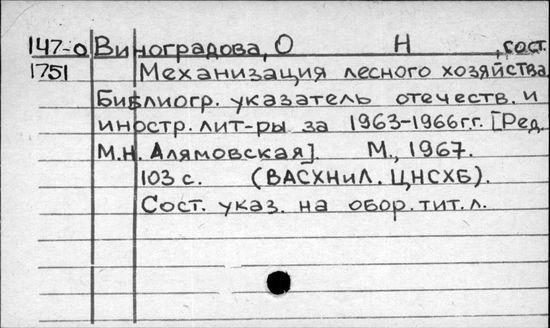 147-о Виноградова, О Н , сост.
1751 Механизация лесного хозяйства.
Библиогр. указатель отечеств. и
иностр. лит-ры за 1963-1966г.г. [Ред.
М.Н. Алямовская]. М., 1967.
103 с. (ВАСХНиЛ. ЦНСХБ).
Сост. указ. на обор. тит. л.